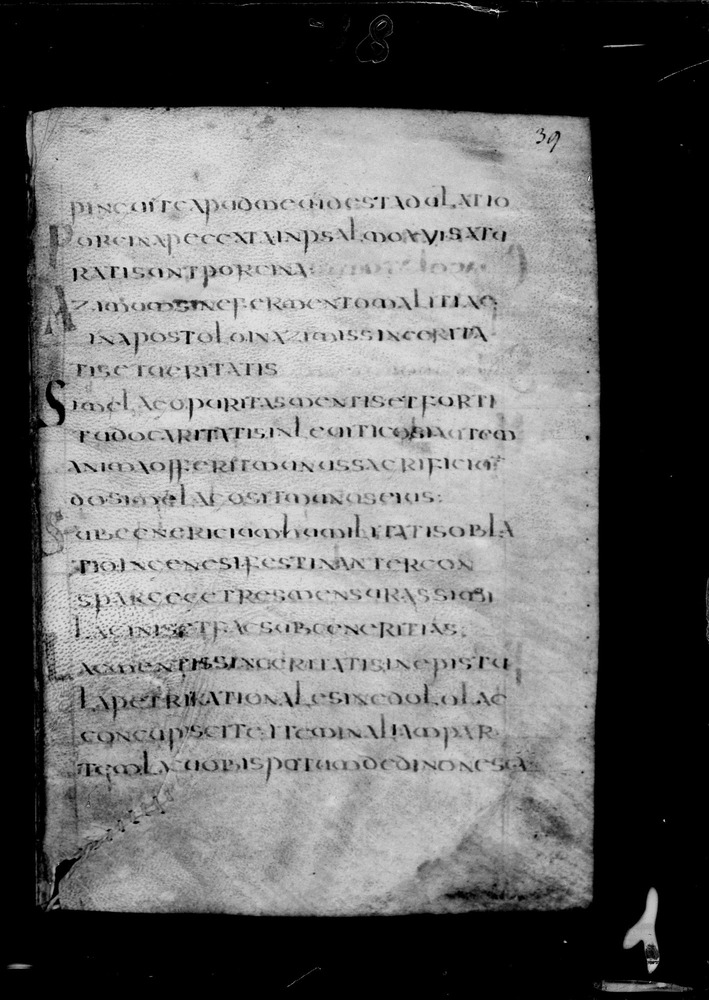 39
PINGUIT CAPUD MEUM ESTADULATIO
PORCINA PECCATA IN PSALMO XVI SATU
RATI SUNT PORCINA
AZIMUM SINE FERMENTO MALITIAE
IN APOSTOLO IN AZIMIS SINCERITA
TIS ET UERITATIS
SIMELA EO PURITAS MENTIS ET FORTI
TUDO CARITATIS IN LEUITICO SI AUTEM
ANIMA OFFERIT MUNUS SACRIFICIUM
DO SIMELACO SIT MUNUS EIUS:
SUBCENERICIAM HUMILITATIS OBLA
TIO IN GENESI FESTINANTER CON
SPARGE TRES MENSURAS SIMI
LAGINIS ET FAC SUBCENERITIAS;
LAC MENTIS SINCERITATIS IN EPISTU
LA PETRI RATIONALE SINE DOLO LAC
CONCUPISCITE ITEM IN ALIAM PAR
TEM LAC UOBIS POTUM DEDI NON ESCA